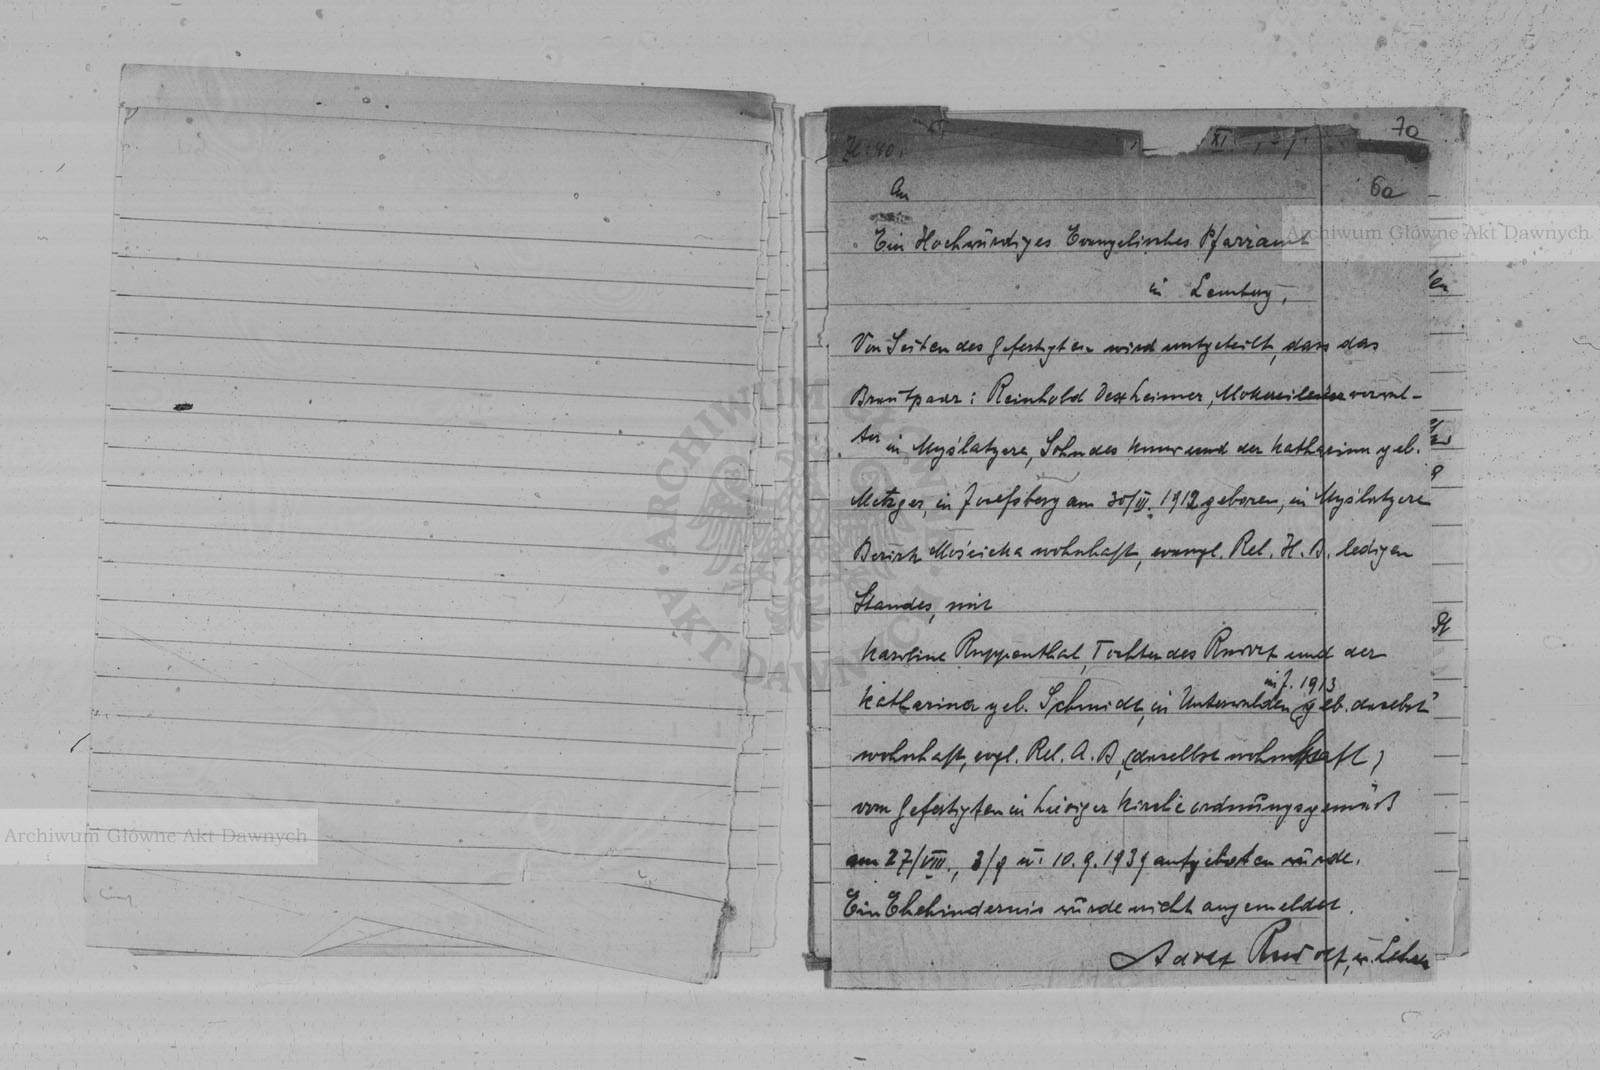 70
Zl: 40.
XI.
An
6a
Ein Hochwürdiges Evangelisches Pfarramt
in Lemberg,
Von Seiten des Gefertigten wird mitgeteilt, dass das
Brautpaar: Reinhold Dexheimer, Molkereileiter verwal-
ter in Myślatycze, Sohn des und der Katharina geb.
Metzger, in Josefsberg am 30/III. 1912 geboren, in Myślatycze
Bezirk Mościcka wohnhaft, evangl. Rel. H. B. ledigen
Standes, mit
Karoline Ruppenthal, Tochter des Rudolf und der
im J. 1913
Katharina geb. Schmidt, in Unterwalden geb. daselbst
wohnhaft, evgl. Rel. A. B, (daselbst wohnhaft)
vom Gefertigten in hiesiger Kirche ordnungsgemäß
am 27/VIII., 3/9 u. 10. 9. 1939 aufgeboten würde.
Ein Ehehindernis würde nicht angemeldet.
Adolf Rudolf,
Archiwum Główne Akt Dawnych
Archiwum Główne Akt Dawnych
ARCHIWUM GŁÓWNE AKT DAWNYCH